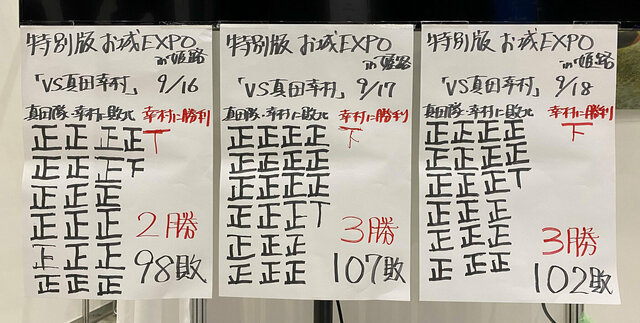 特別版 お城EXPO
in 姫路
「VS真田幸村」 9/16
真田隊・幸村に敗北 幸村に勝利
正正正正 丅
正正正下
正正正
正正正
正正正
正正正
2勝
98敗
特別版 お城EXPO
in 姫路
「VS真田幸村」 9/17
真田隊・幸村に敗北 幸村に勝利
正正正正 下
正正正正
正正正正
正正正丅
正正正
正正正
3勝
107敗
特別版 お城EXPO
in 姫路
「VS真田幸村」 9/18
真田隊・幸村に敗北 幸村に勝利
正正正正 下
正正正正
正正正丅
正正正
正正正
正正正
3勝
102敗